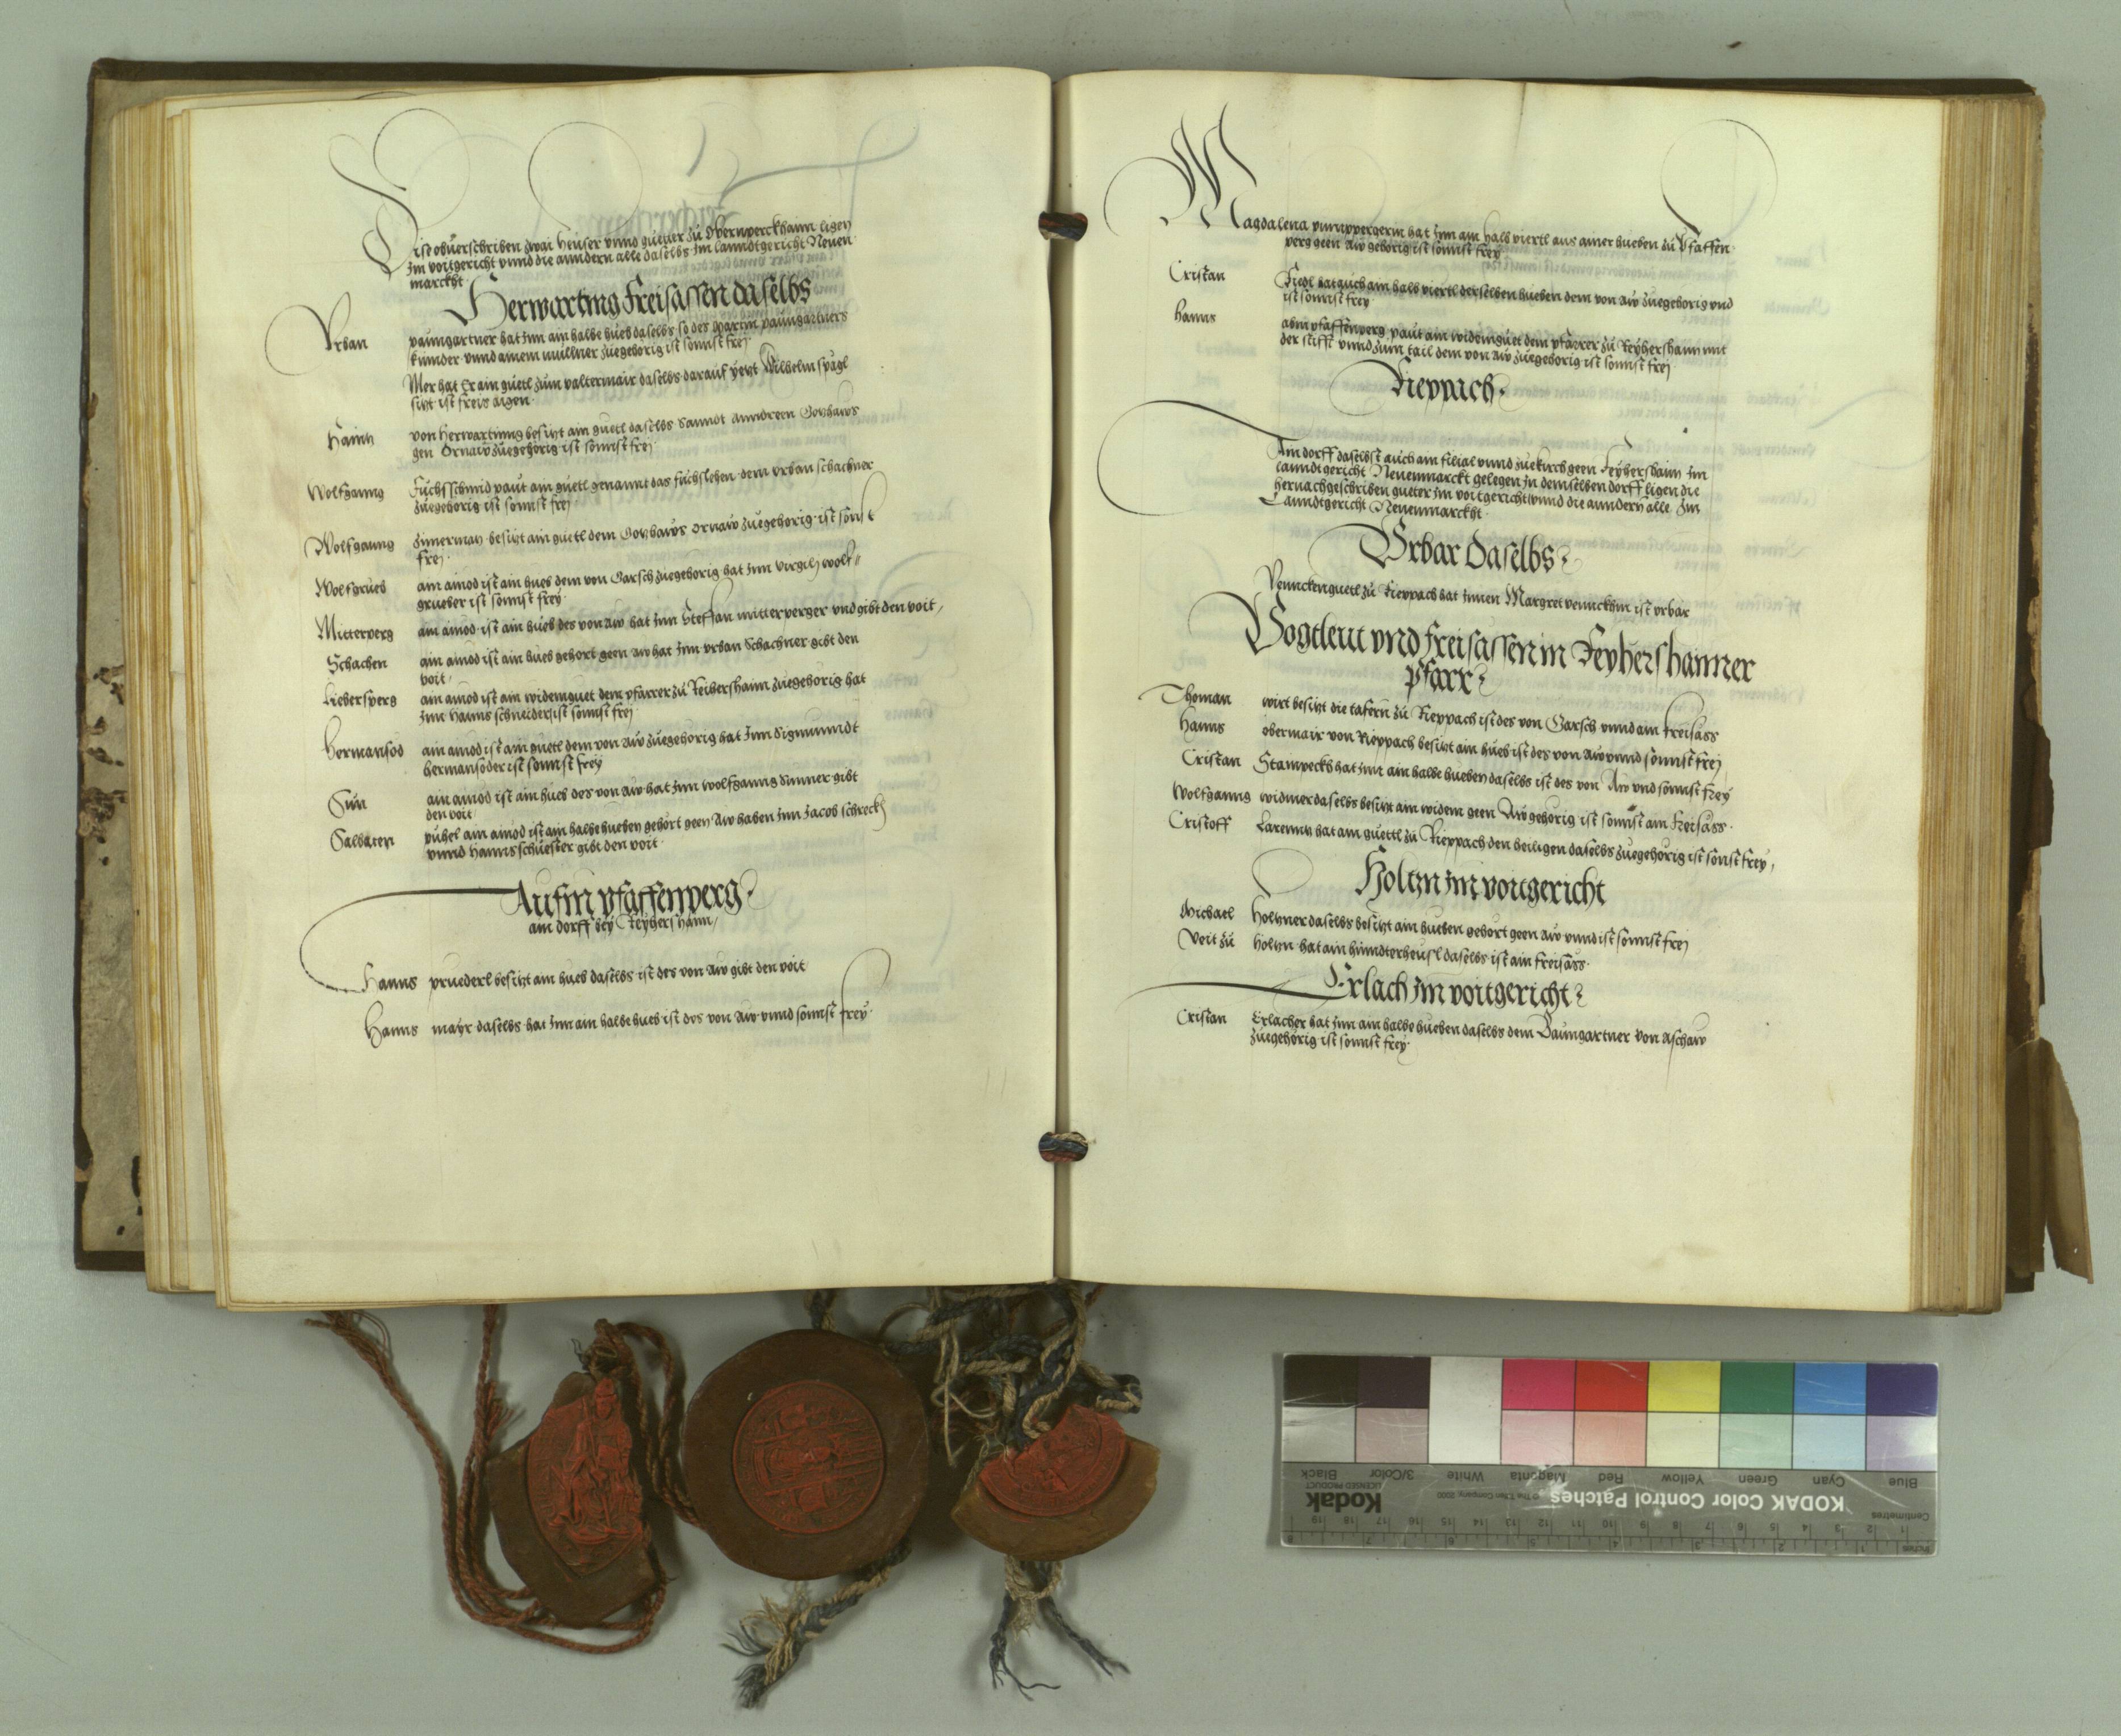 Dise obuerschriben zwai heuser vnnd gueter zu Obernperckhaim ligen
Im voitgericht vnnd die anndern alle daselbs Im lanndtgericht Neuen
marckht
Herwarting Freisassen daselbs
Vrban paumgartner hat Inn ain halbe hueb daselbs so des Martin paumgartners
kinnder vnnd ainem müllner zuegehorig ist sonnst frei
Mer hat Er ain guetl zum paltermair daselbs darauf yetzt Wilhelm spägl
sitzt ist freis aigen
Haintz von herwarting besitzt ain guetl daselbs Sanndt Anndreen Gotzhaws
gen Ornaw zuegehorig ist sonnst frei
Wolfganng Fuchsschmid paut ain guetl genannt das fuchslehen dem vrban schachner
zuegehorig ist sonnst frei
Wolfganng zimerman besitzt ain guetl dem Gotzhaws Ornaw zuegehorig ist sonst
frei
Wolfgrueb ain ainod ist ain hueb dem von Garsch zuegehorig hat Inn virgili wolf
grueber ist sonnst frey
Mitterperg ain ainod ist ain hueb des von Aw hat Inn Steffan mitterperger vnd gibt den voit
Schachen ain ainod ist ain hueb gehort geen Aw hat Inn vrban Schachner gibt den
voit
Liebersperg ain ainod ist ain widemguet dem pfarrer zu Reihershaim zuegehorig hat
Inn Hanns schneider ist sonnst frei
Hermansöd ain ainod ist ain guetl dem von Aw zuegehorig hat Inn Sigmunndt
hermansoder ist sonnst frey
Sün ain ainod ist ain hueb des von Aw hat Inn wolfganng Sunner gibt
den voit
puhel ain ainod ist ain halbe hueben gehört geen Aw haben Inn Jacob schreckh
vnnd Hanns schuester gibt den voit
Aufm pfaffenperg
ain dorff bey Feyhershaim
Hanns pruederl besitzt ain hueb daselbs ist des von Aw gibt den voit
Hanns mayr daselbs hat Inn ain halbe hueb ist des von Aw vnnd sonnst frey
Magdalena hat Inn ain halb viertl aus ainer hueben zu Pfaffen
perg geen Aw gehorig ist sonnst frey
Cristan Fiedl hat auch ain halb viertl derselben hueben dem von Aw zuegehorig vnd
ist sonnst frey
Hanns abm pfaffenperg paut ain widemguet dem pfarrer zu Reyhershaim mit
der stifft vnnd zum tail dem von Aw zuegehorig ist sonnst frei
Rieppach
Ain dorff daselbst auch ain filial vnnd zuekirch geen Feyhershaim Im
lanndtgericht Neuenmarckt gelegen In demselben dorff ligen die
hernachgeschriben gueter Im voitgericht vnnd die anndern alle Im
Lanndtgericht Neuenmarckht
Vrbar daselbs
Pennckenguetl zu Rieppach hat Innen Margret pennckhin ist vrbar
Vogtleut vnd freisassen in Feyhershaimer
pfarr
Thoman wirt besitzt die tafern zu Rieppach ist des von Garsch vnnd ain Freisäss
Hanns obermair von Rieppach besitzt ain hueb ist des von Aw vnnd sonnst frei
Cristan Stampeckh hat Inn ain halbe hueben daselbs ist des von Aw vnd sonnst frey
Wolfganng widmer daselbs besitzt ain widem geen Aw gehörig ist sonnst ain Freisäss
Cristoff hat ain guettl zu Rieppach den heiligen daselbs zuegehörig ist sonst frey
Holtzn Im voitgericht
Michael holtzner daselbs besitzt ain hueben gehört geen Aw vnnd ist sonnst frei
Veit zu holtzn hat ain hinndterheusl daselbs ist ain freisäss
Erlach Im voitgericht
Cristan Erlacher hat Inn ain halbe hueben daselbs dem Baumgartner von Aschaw
zuegehörig ist sonnst frey
KODAK Color Control Patches
Kodak
LICENSED PRODUCT
Blue Cyan Green Yellow Red Magenta White 3/Color Black
Centimetres
1 2 3 4 5 6 7 8 9 10 11 12 13 14 15 16 17 18 19